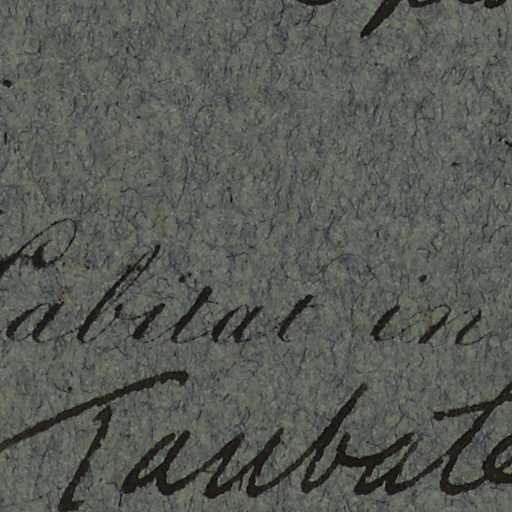 Habitat in
Taubate